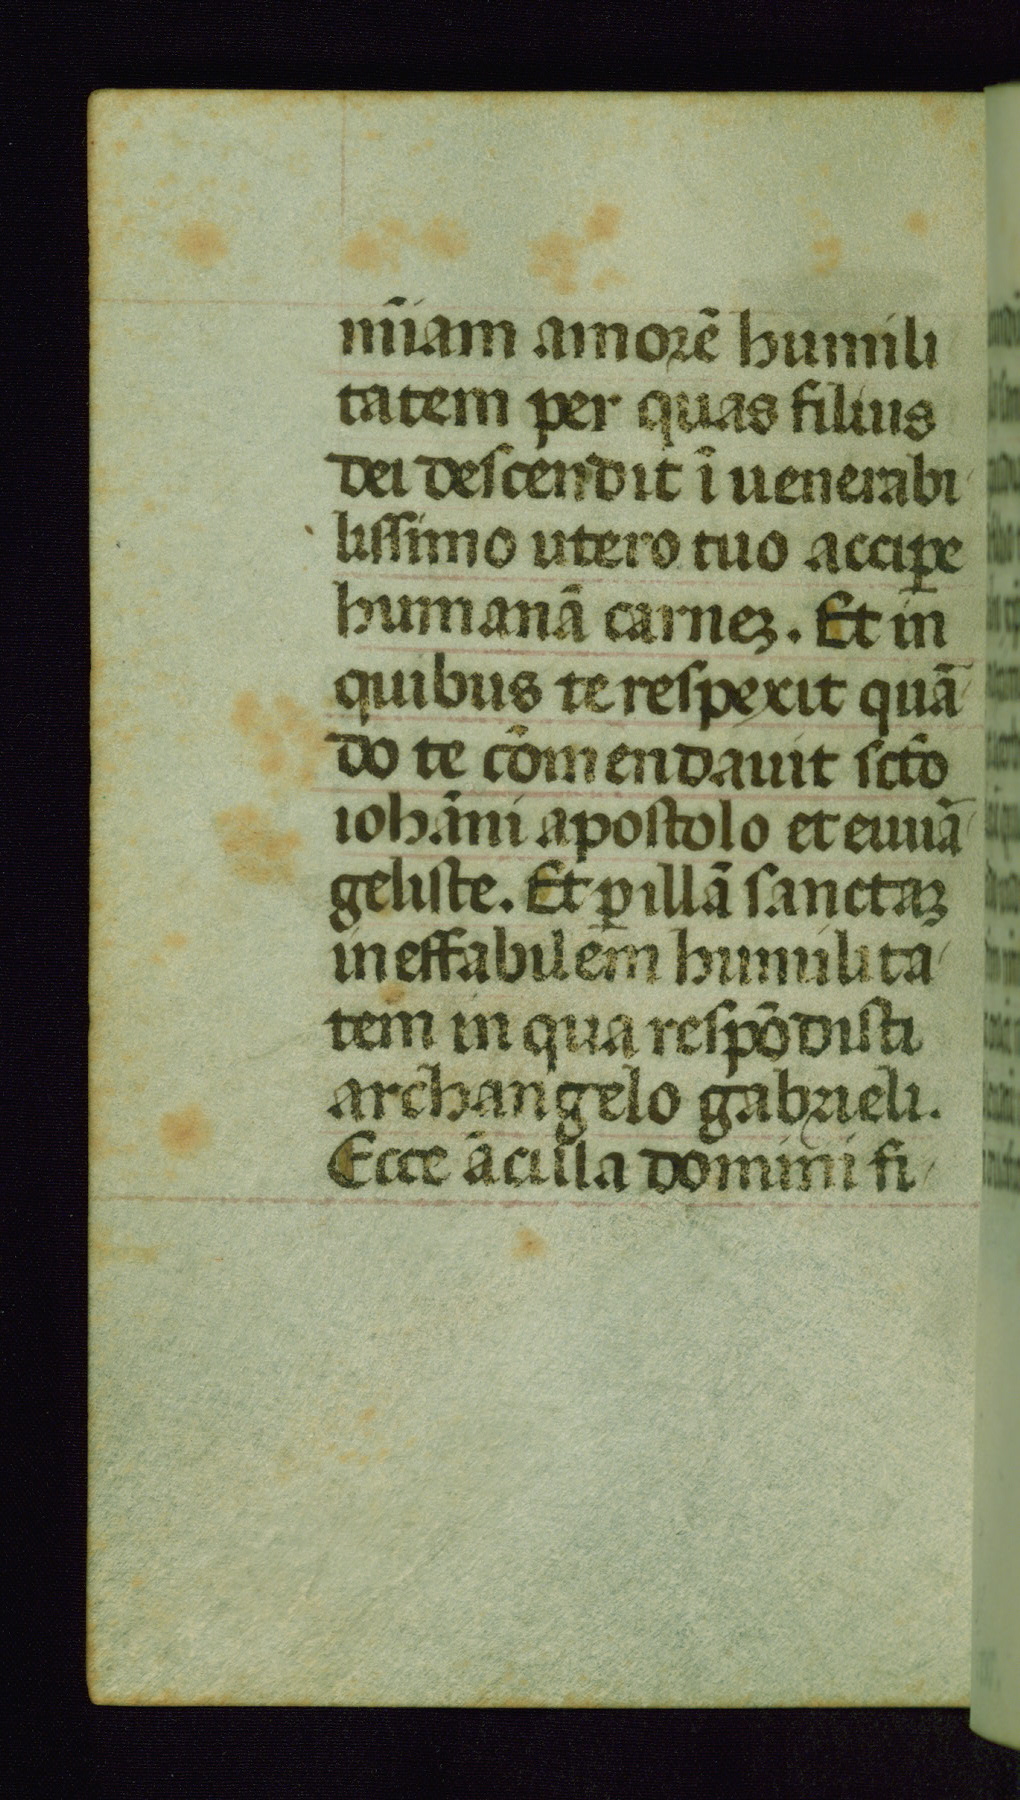 mīiam amorē humili
tatem per quas filius
dei descendit ī uenerabi
lissimo utero tuo accip̱e
humanā carneꝫ. Et in
quibus te respexit quā
do te cōmendauit sctō
iohāni apostolo et euuā
geliste. Et ꝑ illā sanctaꝫ
ineffabilem humilita
tem in qua respōdisti
archangelo gabrieli.
Ecce ācilla domini fi